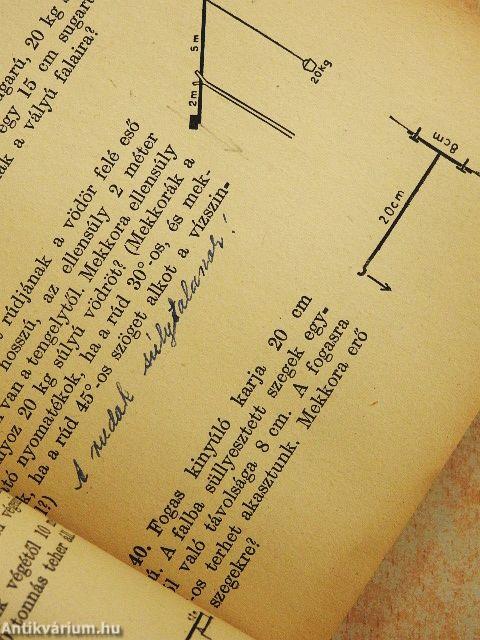 sugarú, 20 kg
egy 15 cm sugarú
nak a vályú falaira?
rúdjának a vödör felé eső
hosszú, az ellensúly 2 méter
van a tengelytől. Mekkora ellensúly
20 kg súlyú vödröt? (Mekkorák a
nyomatékok, ha a rúd 30°-os, és mek-
ha a rúd 45°-os szöget alkot a vízszin-
A rudak súlytalanok!
5 m
2 m
20kg
8cm
20cm
40. Fogas kinyúló karja 20 cm
A falba süllyesztett szegek egy-
való távolsága 8 cm. A fogasra
-os terhet akasztunk. Mekkora erő
szegekre?
végétől 10
tonnás teher
Antikvárium.hu